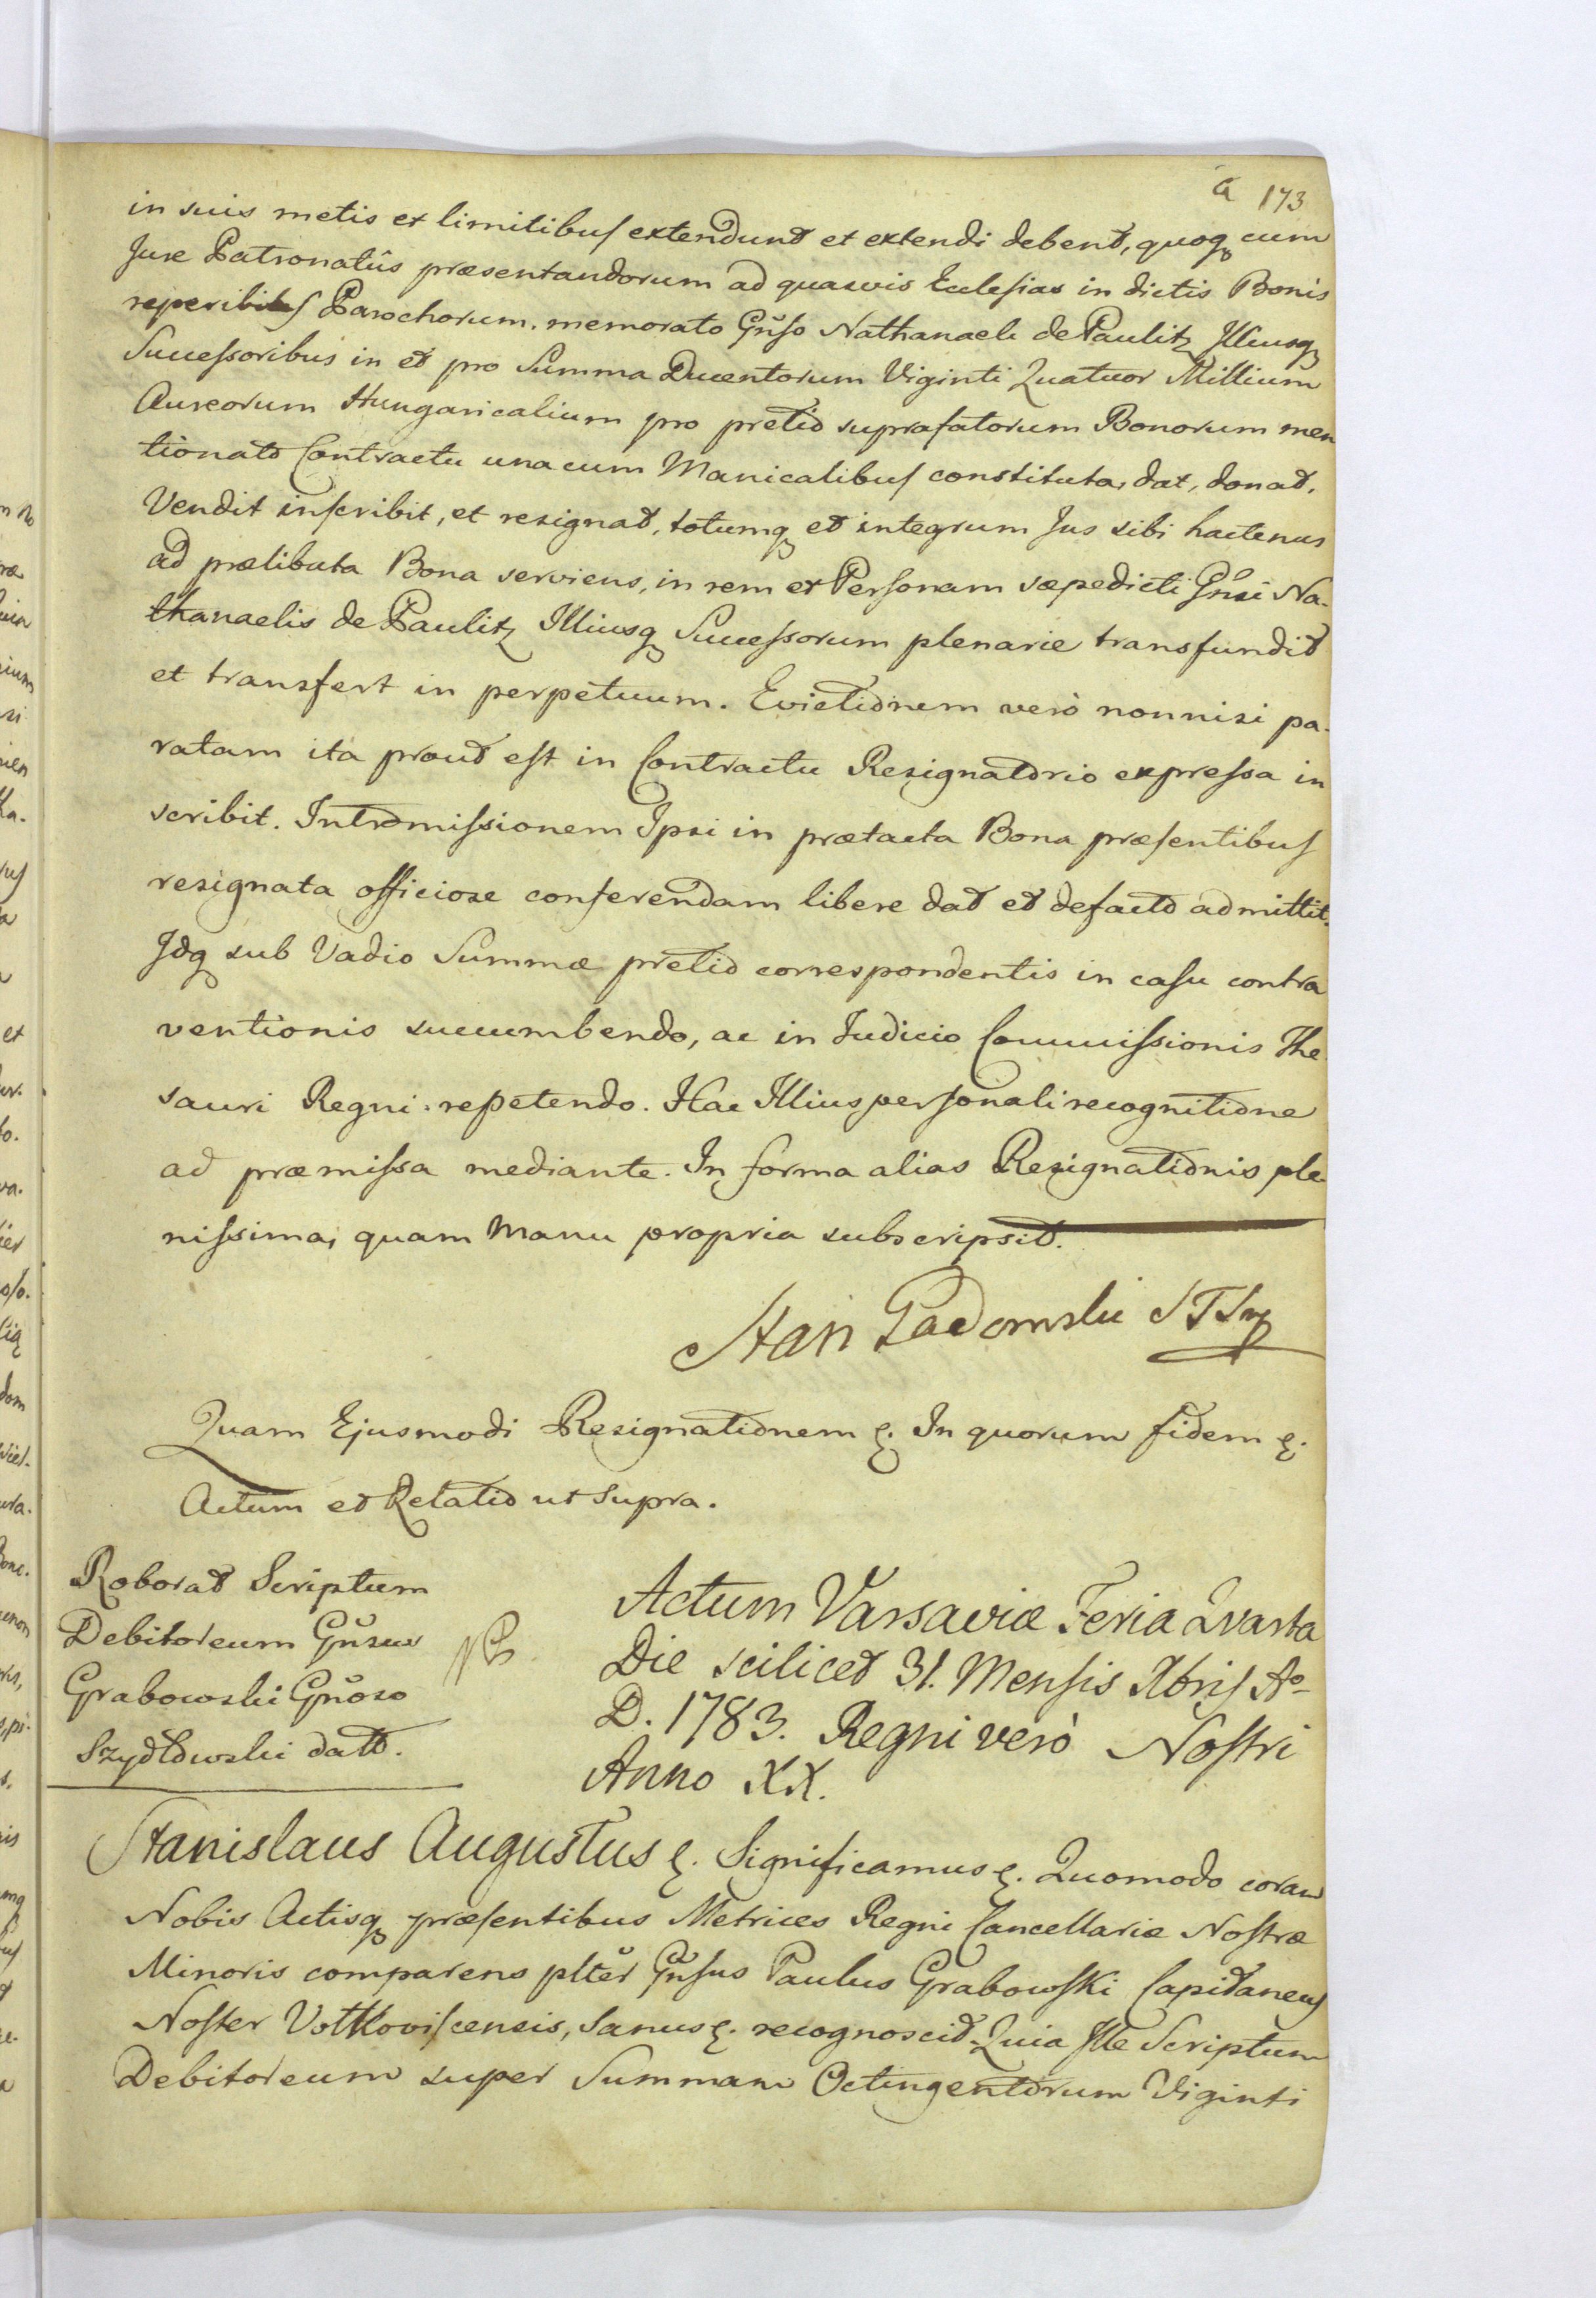 a 173
in suis metis et limitibus extendunt et extendi debent, quoq cum
Jure Patronatûs præsentandorum ad quasvis Ecclesias in dictis Bonis
reperibiles Parochorum. memorato Gñso Nathanaeli de Paulitz Illiusq
Successoribus in et pro Summa Ducentorum Viginti Quatuor Millium
Aureorum Hungaricalium pro pretio suprafatorum Bonorum men
tionato Contractu una cum Manicalibus constituta, dat, donat,
Vendit inscribit, et resignat, totumq et integrum Jus sibi hactenus
ad prælibata Bona serviens, in rem et Personam sæpedicti Gñsi Na-
thanaelis de Paulitz Illiusq Successorum plenarie transfundit
et transfert in perpetuum. Evictionem verò nonnisi pa-
ratam ita prout est in Contractu Resignatorio expressa in
scribit. Intromissionem Ipsi in prætacta Bona præsentibus
resignata officiose conferendam libere dat et defacto admittit.
Idq sub Vadio Summæ pretio correspondentis in casu contra
ventionis succumbendo, ac in Judicio Commissionis The
sauri Regni repetendo. Hac Illius personali recognitione
ad præmissa mediante. In forma alias Resignationis ple-
nissima, quam Manu propria subscripsit.
Stan Gadomski
Quam Ejusmodi Resignationem &. In quorum fidem &.
Actum et Relatio ut supra.
Roborat Scriptum
Debitoreum Gñsus
Grabowski Gñoso
Szydłowski dato.
Actum Varsaviæ Feria Qvarta
Die scilicet 31. Mensis Xbris Ao
D. 1783. Regni verò Nostri
Anno XX.
Stanislaus Augustus &. Significamus &. Quomodo coram
Nobis Actisq præsentibus Metrices Regni Cancellariæ Nostræ
Minoris comparens pltĕr Gñsus Paulus Grabowski Capitaneus
Noster Volkoviscensis, Sanus &. recognoscit. Quia Ille Scriptum
Debitoreum super Summam Octingentorum Viginti